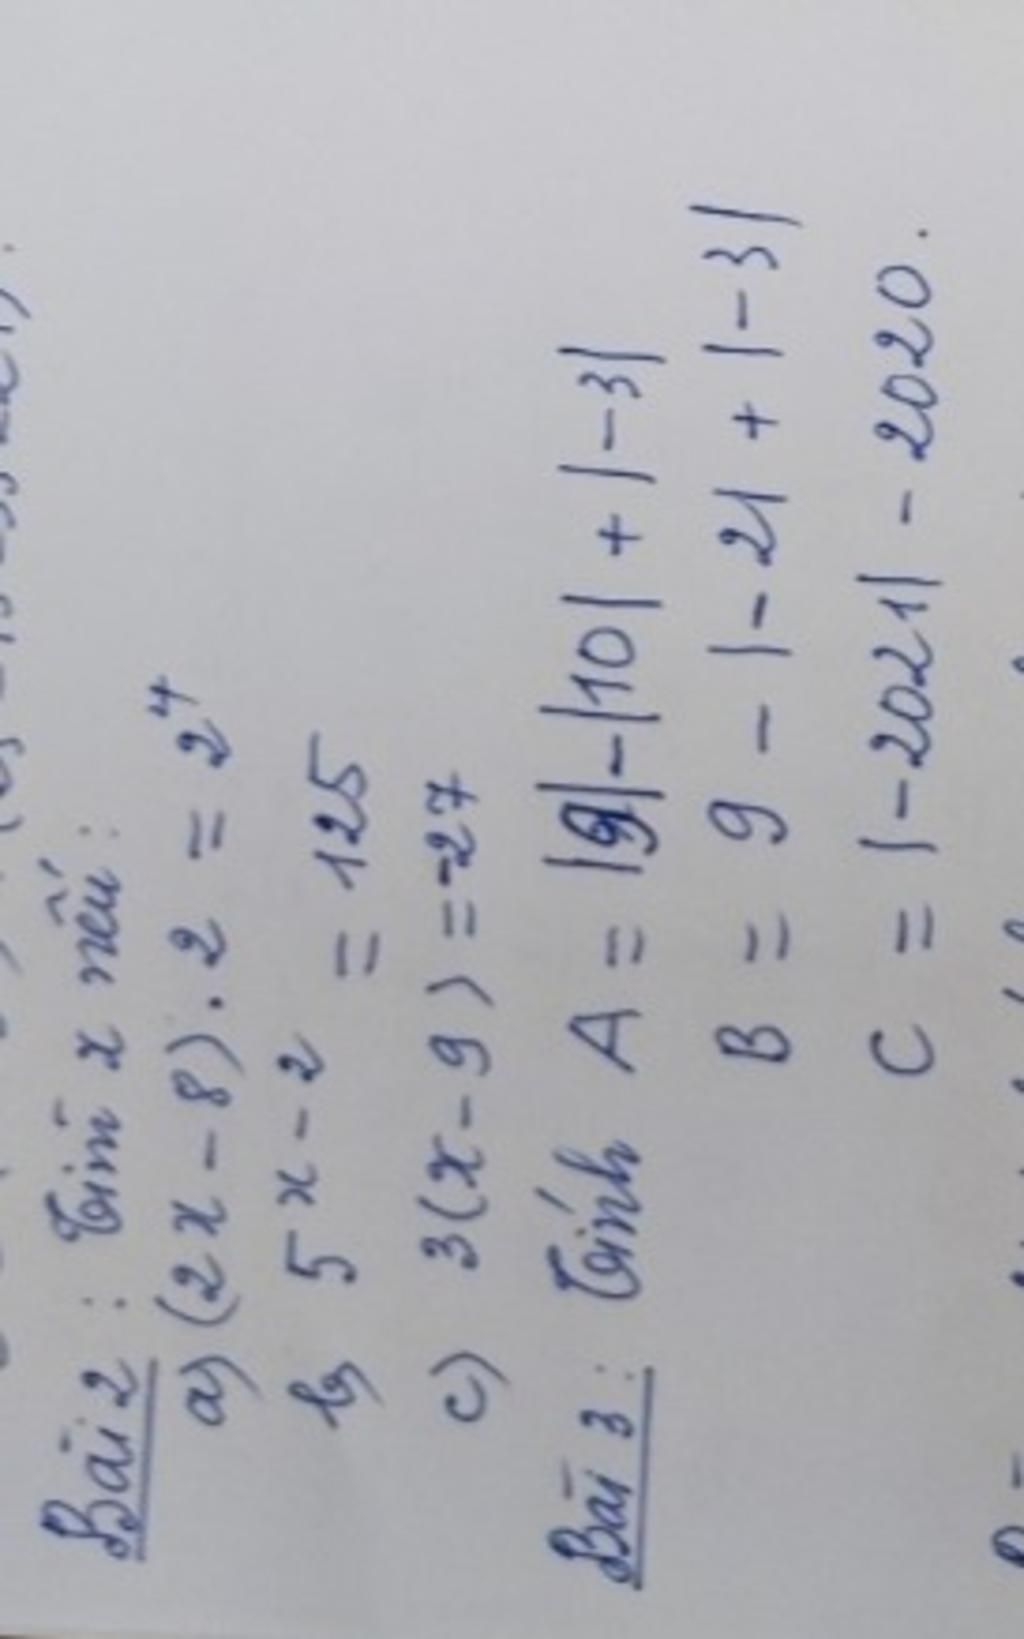 Bài 2 : Tìm x nếu :
a) (2x - 8) . 2 = 2⁴
b) 5 x - 2 = 125
c) 3(x - 9) = -27
Bài 3 : Tính A = |9| - |10| + |-3|
B = 9 - |-2| + |-3|
C = |-2021| - 2020.